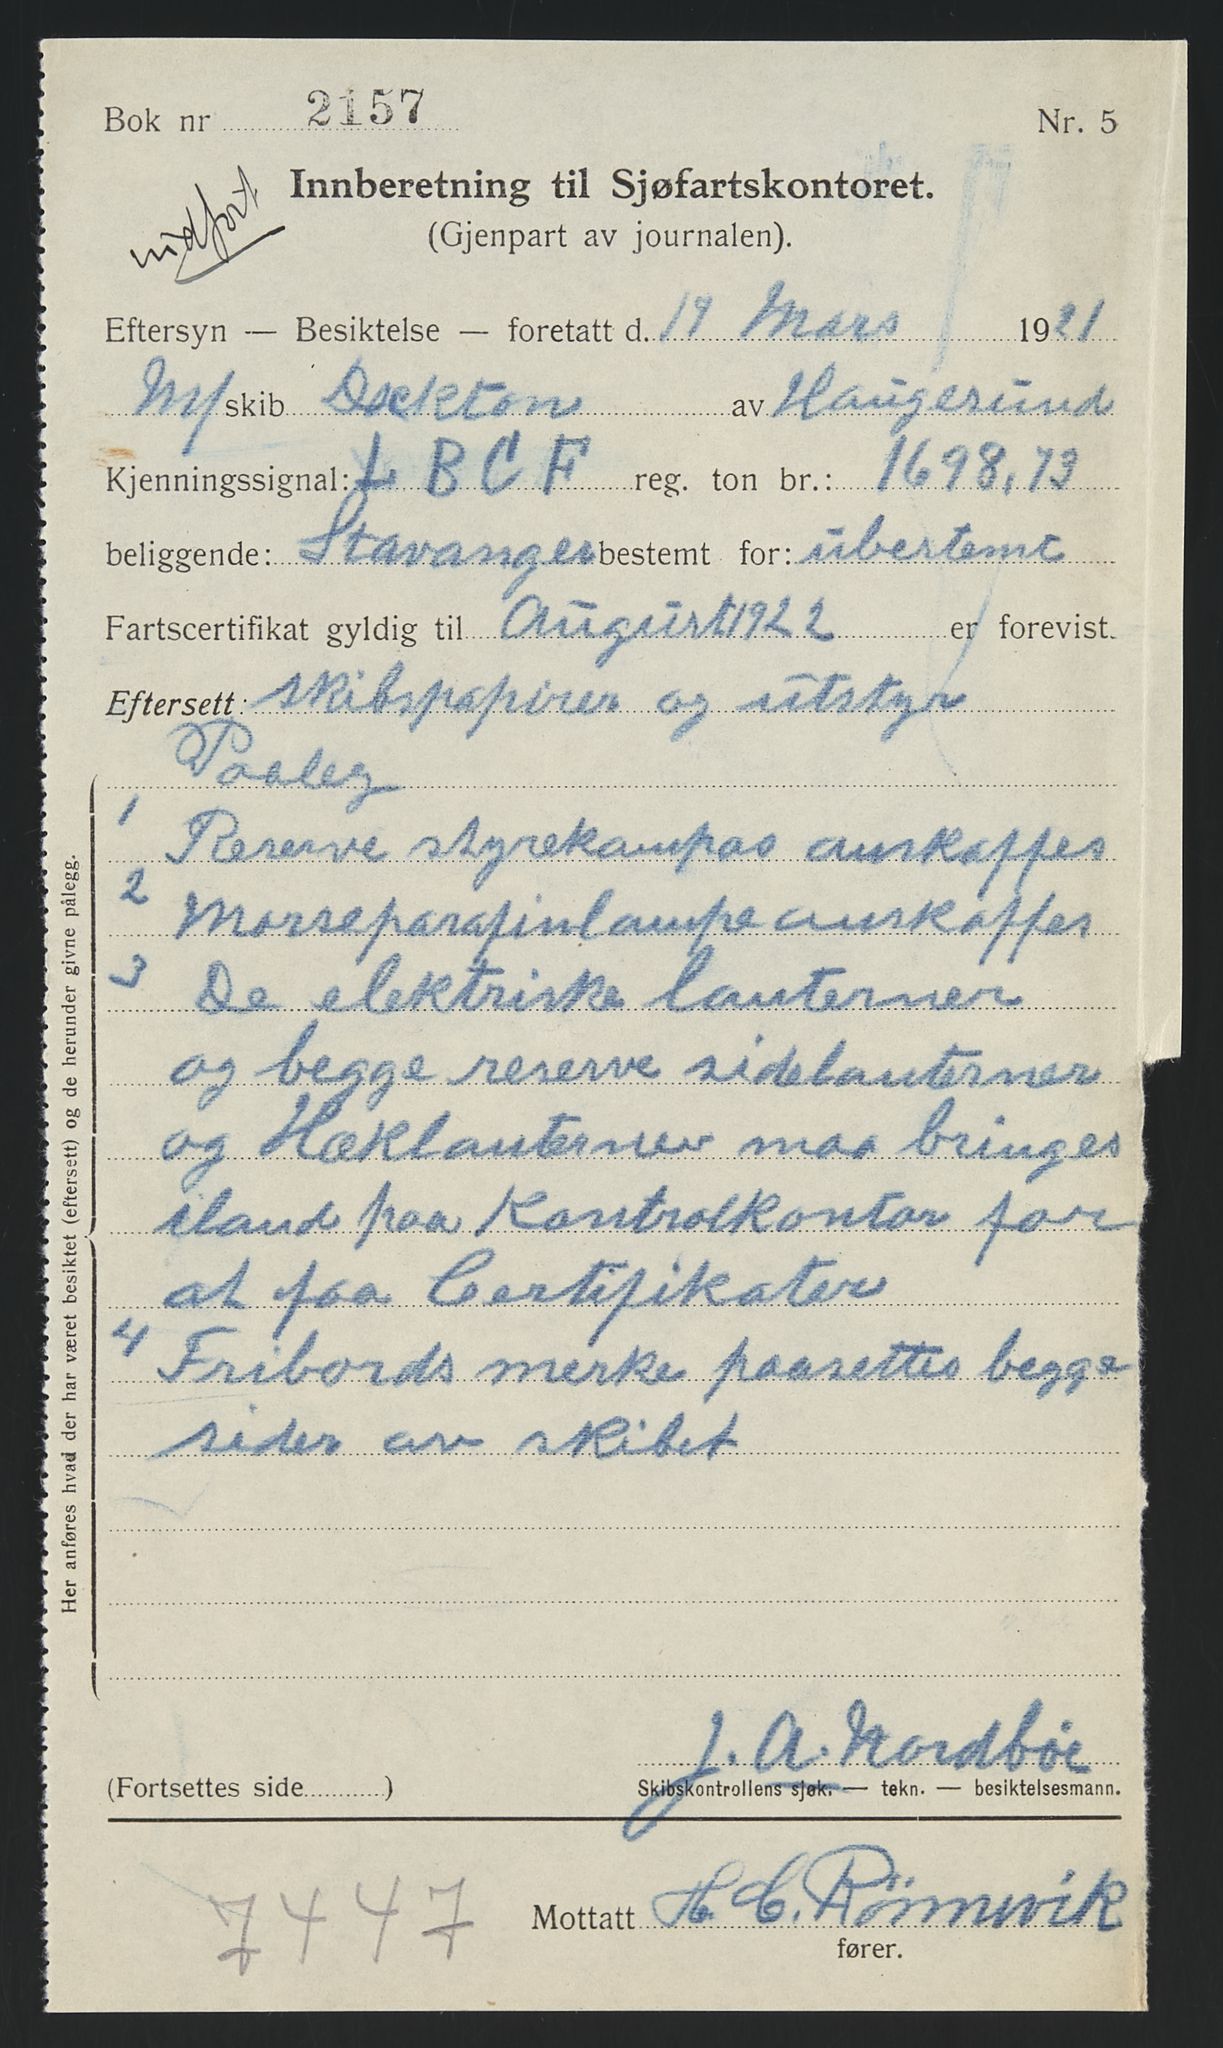 Bok nr 2157 Nr. 5
Innberetning til Sjøfartskontoret.
(Gjenpart av journalen).
Eftersyn — Besiktelse — foretatt d. 19 Mars 1921
M/ skib Dockton av Haugesund
Kjenningssignal: L B C F reg. ton br.: 1698,73
beliggende: Stavanger bestemt for: ubestemt
Fartscertifikat gyldig til August 1922 er forevist.
Eftersett: skibspapirer og utstyr
Paaleg
1 Reserve styrekampas anskaffes
2 Morseparafinlampe anskaffes
3 De elektriske lanterner
og begge reserve sidelanterner
og Hæklanterner maa bringes
iland paa Kontrolkontor for
at faa Certifikater
4 Fribords merke paasettes begge
sider av skibet
Her anføres hvad der har været besiktet (eftersett) og de herunder givne pålegg.
J. A. Nordbøe
(Fortsettes side ) Skibskontrollens sjøk. — tekn. — besiktelsesmann.
7447 Mottatt H. C. Rönnevik
fører.